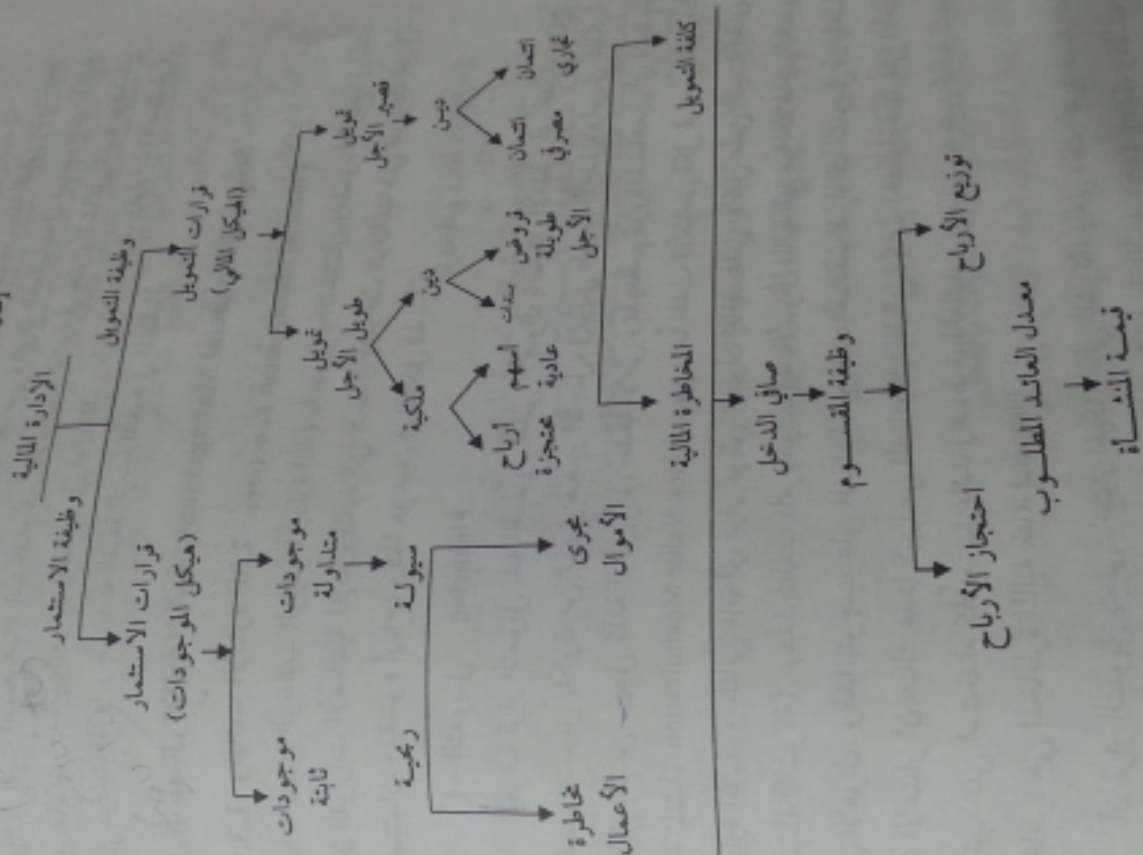 الإدارة المالية
وظيفة الاستثمار
وظيفة التمويل
قرارات الاستثمار
(هيكل الموجودات)
قرارات التمويل
(الهيكل المالي)
موجودات
ثابتة
موجودات
متداولة
تمويل
طويل
الأجل
تمويل
قصير
الأجل
ربحية
سيولة
ملكية
دين
دين
أرباح
محتجزة
أسهم
عادية
سندات
قروض
طويلة
الأجل
ائتمان
مصرفي
ائتمان
تجاري
مخاطرة
الأعمال
مجرى
الأموال
المخاطرة المالية
كلفة التمويل
صافي الدخل
وظيفة المقسوم
احتجاز الأرباح
توزيع الأرباح
معدل العائد المطلوب
قيمة المنشأة